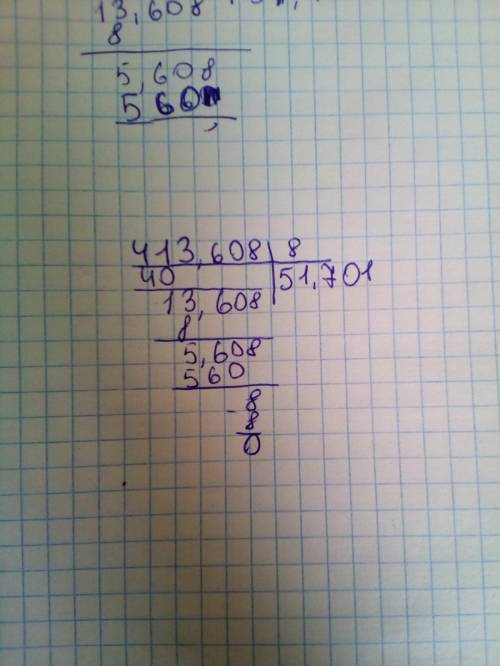 13,608
8
5,608
560
413,608 8
40 51,701
13,608
8
5,608
560
8
8
0